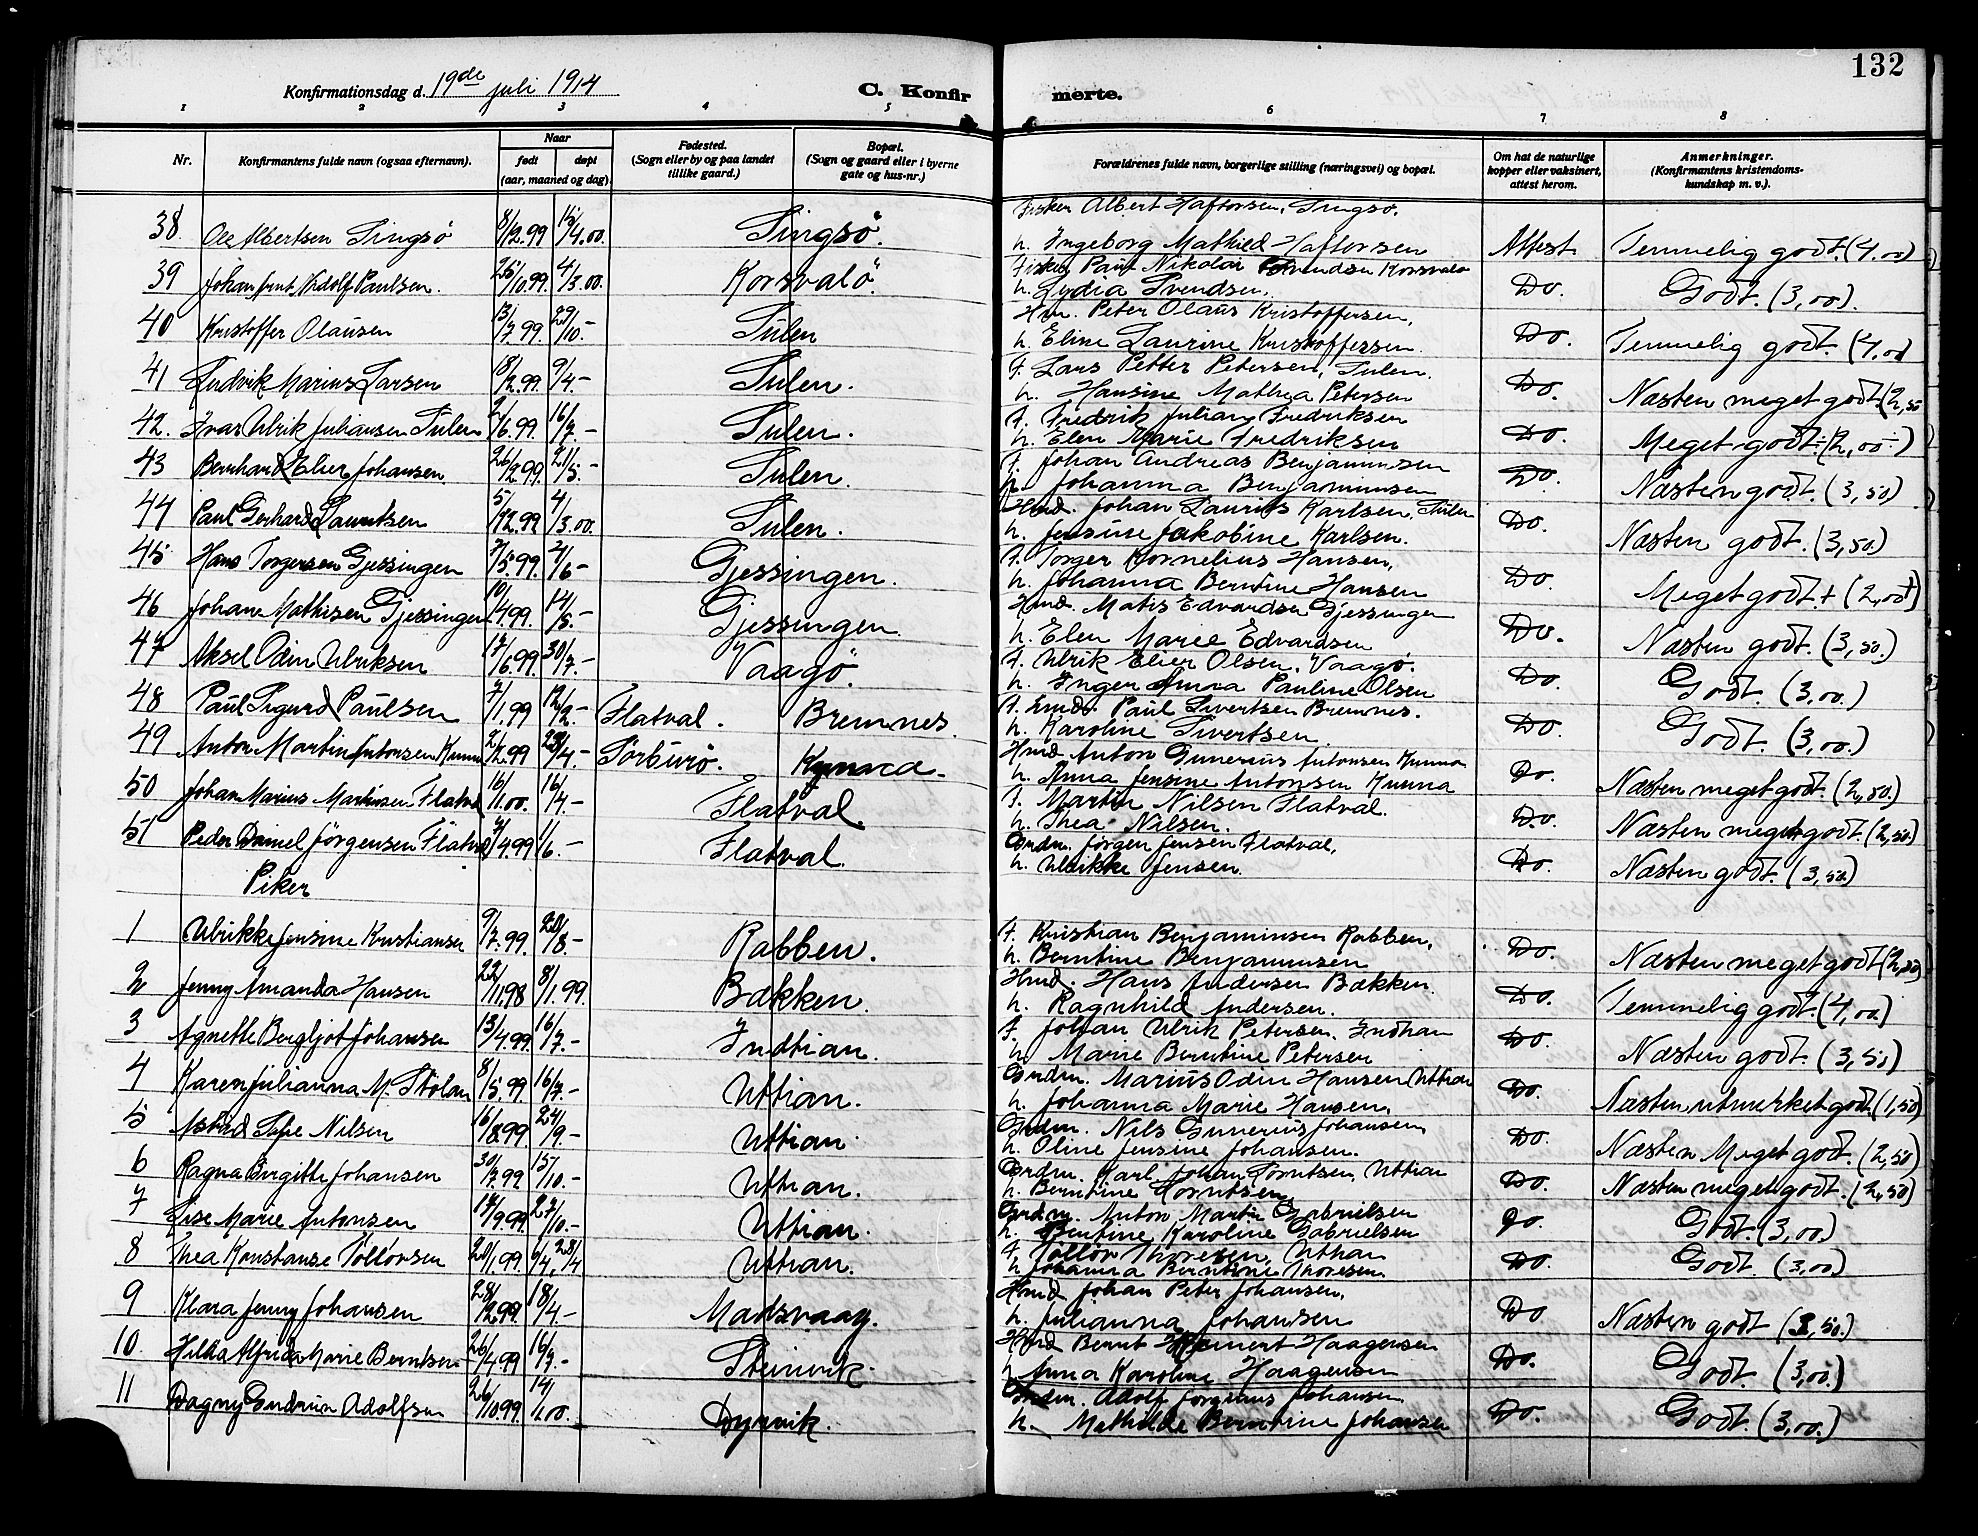 132
Konfirmationsdag d. 19de juli 1914
C. Konfirmerte.
1 2 3 4 5 6 7 8
Nr. Konfirmantens fulde navn (ogsaa efternavn). Naar født døpt (aar, maaned og dag). Fødested. (Sogn eller by og paa landet tillike gaard.) Bopæl. (Sogn og gaard eller i byerne gate og hus-nr.) Forældrenes fulde navn, borgerlige stilling (næringsvei) og bopæl. Om hat de naturlige kopper eller vaksinert, attest herom. Anmerkninger. (Konfirmantens kristendomskundskap m. v.).
Fisker Albert Haftorsen, Singsø.
38 Ole Albertsen Singsø 8/12.99 15/4.00. Singsö. h. Ingeborg Mathild Haftorsen Attest Temmelig godt. (4,00)
Fisker Paul Nikolai Svendsen Korsvalø
39 Johan Arnt Adolf Paulsen. 25/10.99. 4/3.00. Korsvalö. h. Lydia Svendsen. Do. Godt. (3,00).
Hm. Peter Olaus Kristoffersen,
40 Kristoffer Olausen 13/7.99 29/10.- Sulen h. Eline Laurine Kristoffersen. Do. Temmelig godt. (4,00
F. Lars Petter Petersen, Sulen.
41 Ludvik Marius Larsen 18/2.99. 9/4.- Sulen. h. Hansine Mathea Petersen Do. Næsten meget godt. (2,50
F. Fredrik Julian Fredriksen
42. Ivar Ulrik Juliansen Sulen 2/6.99. 16/7.- Sulen. h. Elen Marie Fredriksen Do. Meget godt ÷ (2,00 ÷)
F. Johan Andreas Benjaminsen
43 Bernhard Elier Johansen. 26/2.99. 21/5.- Sulen. h. Johanna Benjaminsen Do. Næsten godt. (3,50)
Hmd. Johan Laurits Karlsen, Sulen
44 Paul Gerhard Lauritsen 5/12.99 4/3.00. Sulen. h. Jensine Jakobine Karlsen. Do. Næsten godt. (3,50)
F. Torger Kornelius Hansen,
45 Hans Torgersen Gjessingen 7/5.99. 2/6- Gjessingen. h. Johanna Berntine Hansen Do. Meget godt. + (2,00+)
Hmd. Matis Edvardsen Gjessingen
46 Johan Mathisen Gjessingen 10/4.99. 14/5.- Gjessingen. h. Elen Marie Edvardsen Do. Næsten godt. (3,50.)
F. Ulrik Elier Olsen, Vaagø.
47 Aksel Odin Ulriksen 17/6.99 30/7.- Vaagö. h. Inger Anna Pauline Olsen Do. Godt. (3,00.)
F. Paul Sivertsen Bremnes.
48 Paul Sigurd Paulsen 7/1.99 12/2.- Flatval. Bremnes. h. Karoline Sivertsen Do. Godt. (3,00.)
Hmd. Anton Gunerius Antonsen Kunna
49 Anton Martin Antonsen Kunna 2/2.99 23/4.- Sörburö. Kunna. h. Anna Jensine Antonsen Kunna Do. Næsten meget godt. (2,50.)
F. Martin Nilsen Flatval.
50 Johan Marius Martinsen Flatval 16/1.00. 16/4.- Flatval. h. Thea Nilsen. Do. Næsten meget godt. (2,50)
Grdm. Jørgen Jensen Flatval,
51 Peder Daniel Jörgensen Flatval 9/4.99 1/6.- Flatval. h. Ulrikke Jensen. Do. Næsten godt. (3,50)
Piker
F. Kristian Benjaminsen Rabben,
1 Ulrikke Jensine Kristiansen 9/7.99. 20/8.- Rabben. h. Berntine Benjaminsen Do. Næsten meget godt (2,50)
Hmd. Hans Andersen Bækken.
2 Jenny Amanda Hansen 22/11.98 8/1.99. Bækken. h. Ragnhild Andersen. Do. Temmelig godt. (4,00)
F. Johan Ulrik Petersen. Indtian
3 Agnette Bergljot Johansen 13/4.99. 16/7.- Indtian. h. Marie Berntine Petersen Do. Næsten godt. (3,50)
Grdm. Marius Odin Hansen Uttian
4 Karen Julianna M. Stølan 8/5.99 16/7.- Uttian. h. Johanna Marie Hansen. Do. Næsten utmerket godt. (1,50)
Grdm. Nils Gunerius Johansen
5 Astrid Sofie Nilsen 16/8.99 24/9.- Uttian. h. Oline Jensine Johansen. Do. Næsten Meget godt. (2,50)
Grdm. Karl Johan Uttian
6 Ragna Birgitte Johansen 30/7.99 15/10.- Uttian. h. Berntine Do. Næsten meget godt. (2,50)
Grdm. Anton Martin Gabrielsen
7 Lise Marie Antonsen 17/9.99. 27/10.- Uttian. h. Berntine Karoline Gabrielsen Do. Godt. (3,00)
F. Tollor Thoresen, Uttian
8 Thea Konstanse Tollorsen 20/1.99. 9/4, 23/4 Uttian. h. Johanna Berntine Thoresen Do. Godt. (3,00)
Hmd Johan Peter Johansen,
9 Klara Jenny Johansen 28/2.99. 18/4.- Mausvaag. h. Julianna Johansen Do Næsten godt (3,50.)
Hmd Bernt Meinert Haagensen
10. Hilda Alfrida Marie Berntsen 26/4.99 16/7.- Steinvik. h. Anna Karoline Haagensen Do. Godt. (3,00.)
Grdm. Adolf Jørginus Johansen
11 Dagny Gudrun Adolfsen 26/10.99. 14/1.00. Dyrvik. h. Mathilde Berntine Johansen Do. Godt. (3,00.)